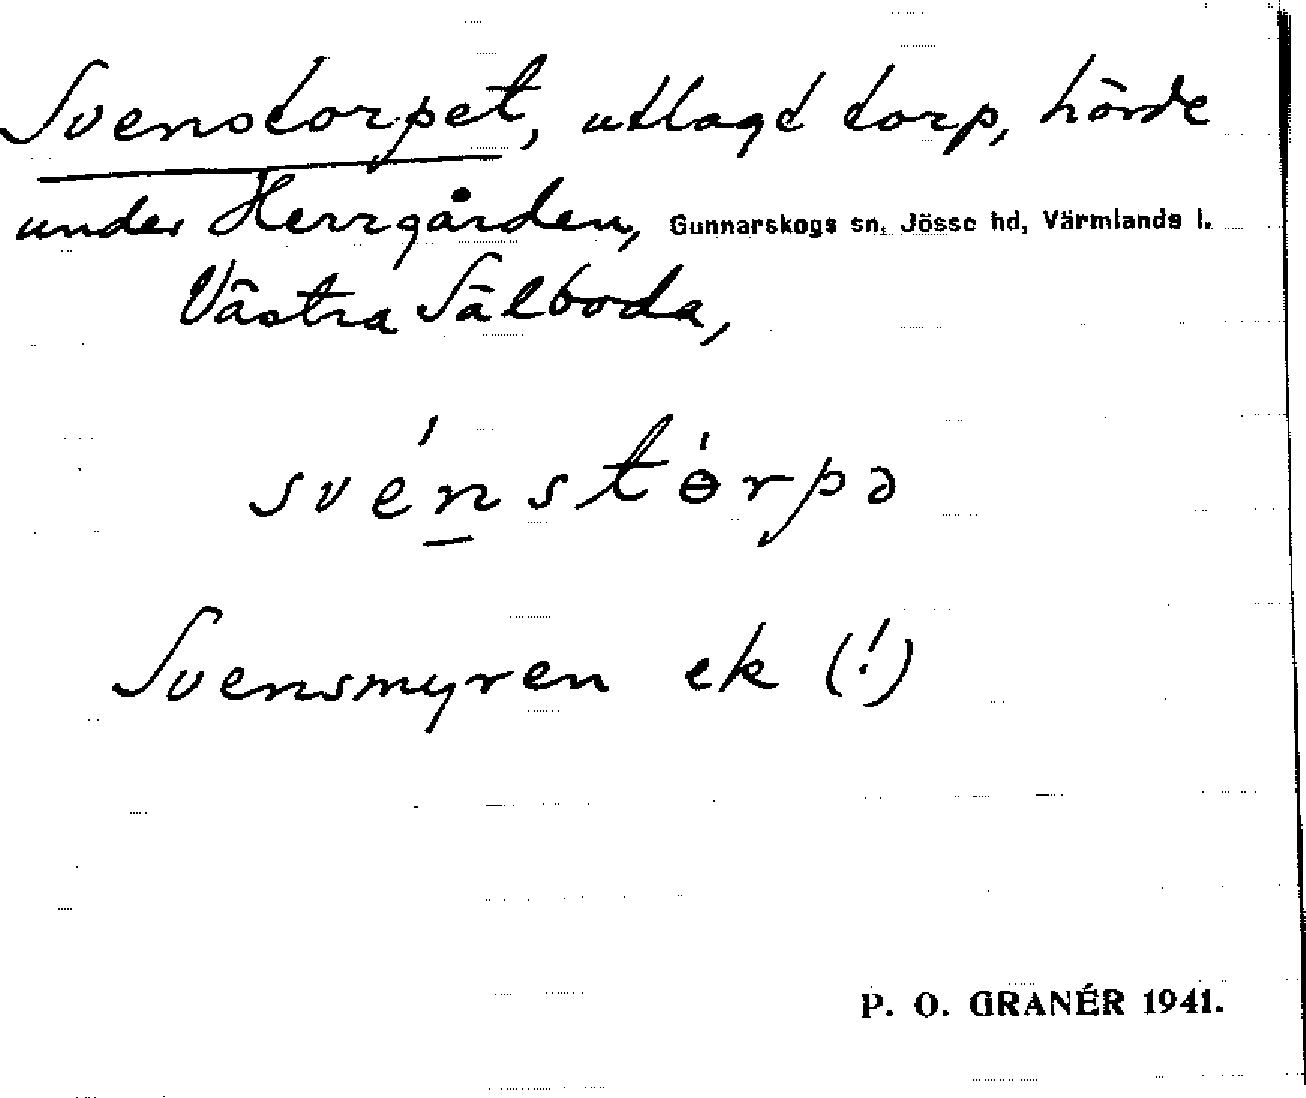 Svenstorpet, utlagd torp, hörde
under Herrgården, Gunnarskogs sn, Jösse hd, Värmlands l.
Västra Sälboda,
svénstɵ́rpə
Svensmyren ek (!)
P. O. GRANÉR 1941.